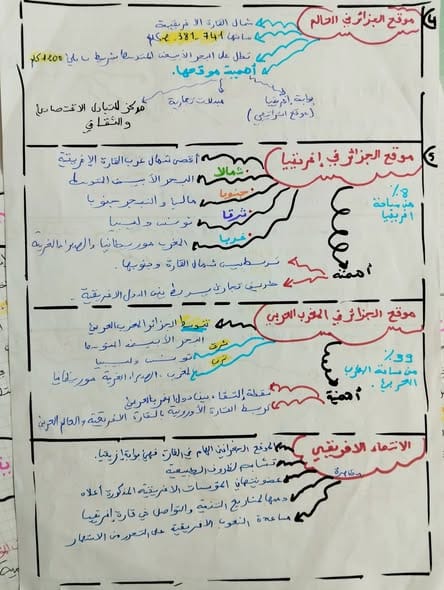 ④ موقع الجزائر في العالم
شمال القارة الافريقية
مساحتها 741 381 2 كم
تطل على البحر الأبيض المتوسط بشريط ساحلي 1200 كلم
أهمية موقعها:
بوابة إفريقيا
(موقع استراتيجي)
مبدلات تجارية
مركز للتبادل الاقتصادي
والثقافي
⑤ موقع الجزائر في إفريقيا
أقصى شمال غرب القارة الإفريقية
شمالا: البحر الأبيض المتوسط
جنوبا: ماليا والنيجر جنوبا
شرقا: تونس وليبيا
غربا: المغرب موريطانيا والصحراء الغربية
8%
من مساحة
افريقيا
أهميته
تربط بين شمال القارة وجنوبها.
طريق تجاري يربط بين الدول الافريقية.
موقع الجزائر في المغرب العربي
تتوسط الجزائر المغرب العربي
البحر الأبيض المتوسط
شرق تونس وليبيا
غرب المغرب، الصحراء الغربية موريطانيا
39%
من مساحة المغرب
العربي.
أهميته
نقطة التقاء بين دول المغرب العربي
تربط القارة الأوروبية بالقارة الافريقية والعالم العربي
الانتماء الافريقي
مظاهره
الموقع الجغرافي الهام في القارة فهي بوابة إفريقيا.
تشابه الظروف الطبيعية
عضويتها في المؤسسات الافريقية المذكورة أعلاه
دعمها لمشاريع التنمية والتواصل في قارة إفريقيا
مساعدة الشعوب الافريقية على التحرر من الاستعمار